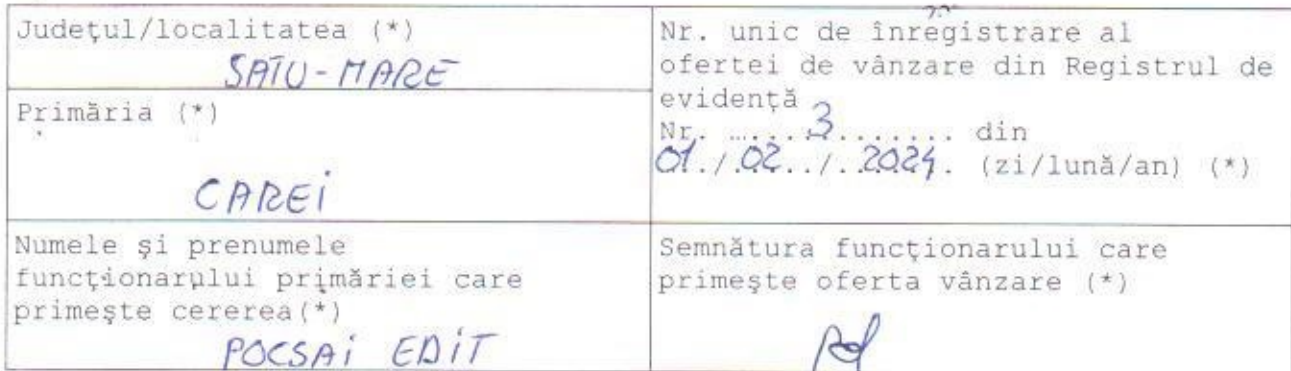 Județul/localitatea (*)
SATU-MARE
Primăria (*)
CAREI
Nr. unic de înregistrare al
ofertei de vânzare din Registrul de
evidență
Nr. ....3....... din
01./.02../..2024. (zi/lună/an) (*)
Numele și prenumele
funcționarului primăriei care
primește cererea(*)
POCSAI EDIT
Semnătura funcționarului care
primește oferta vânzare (*)